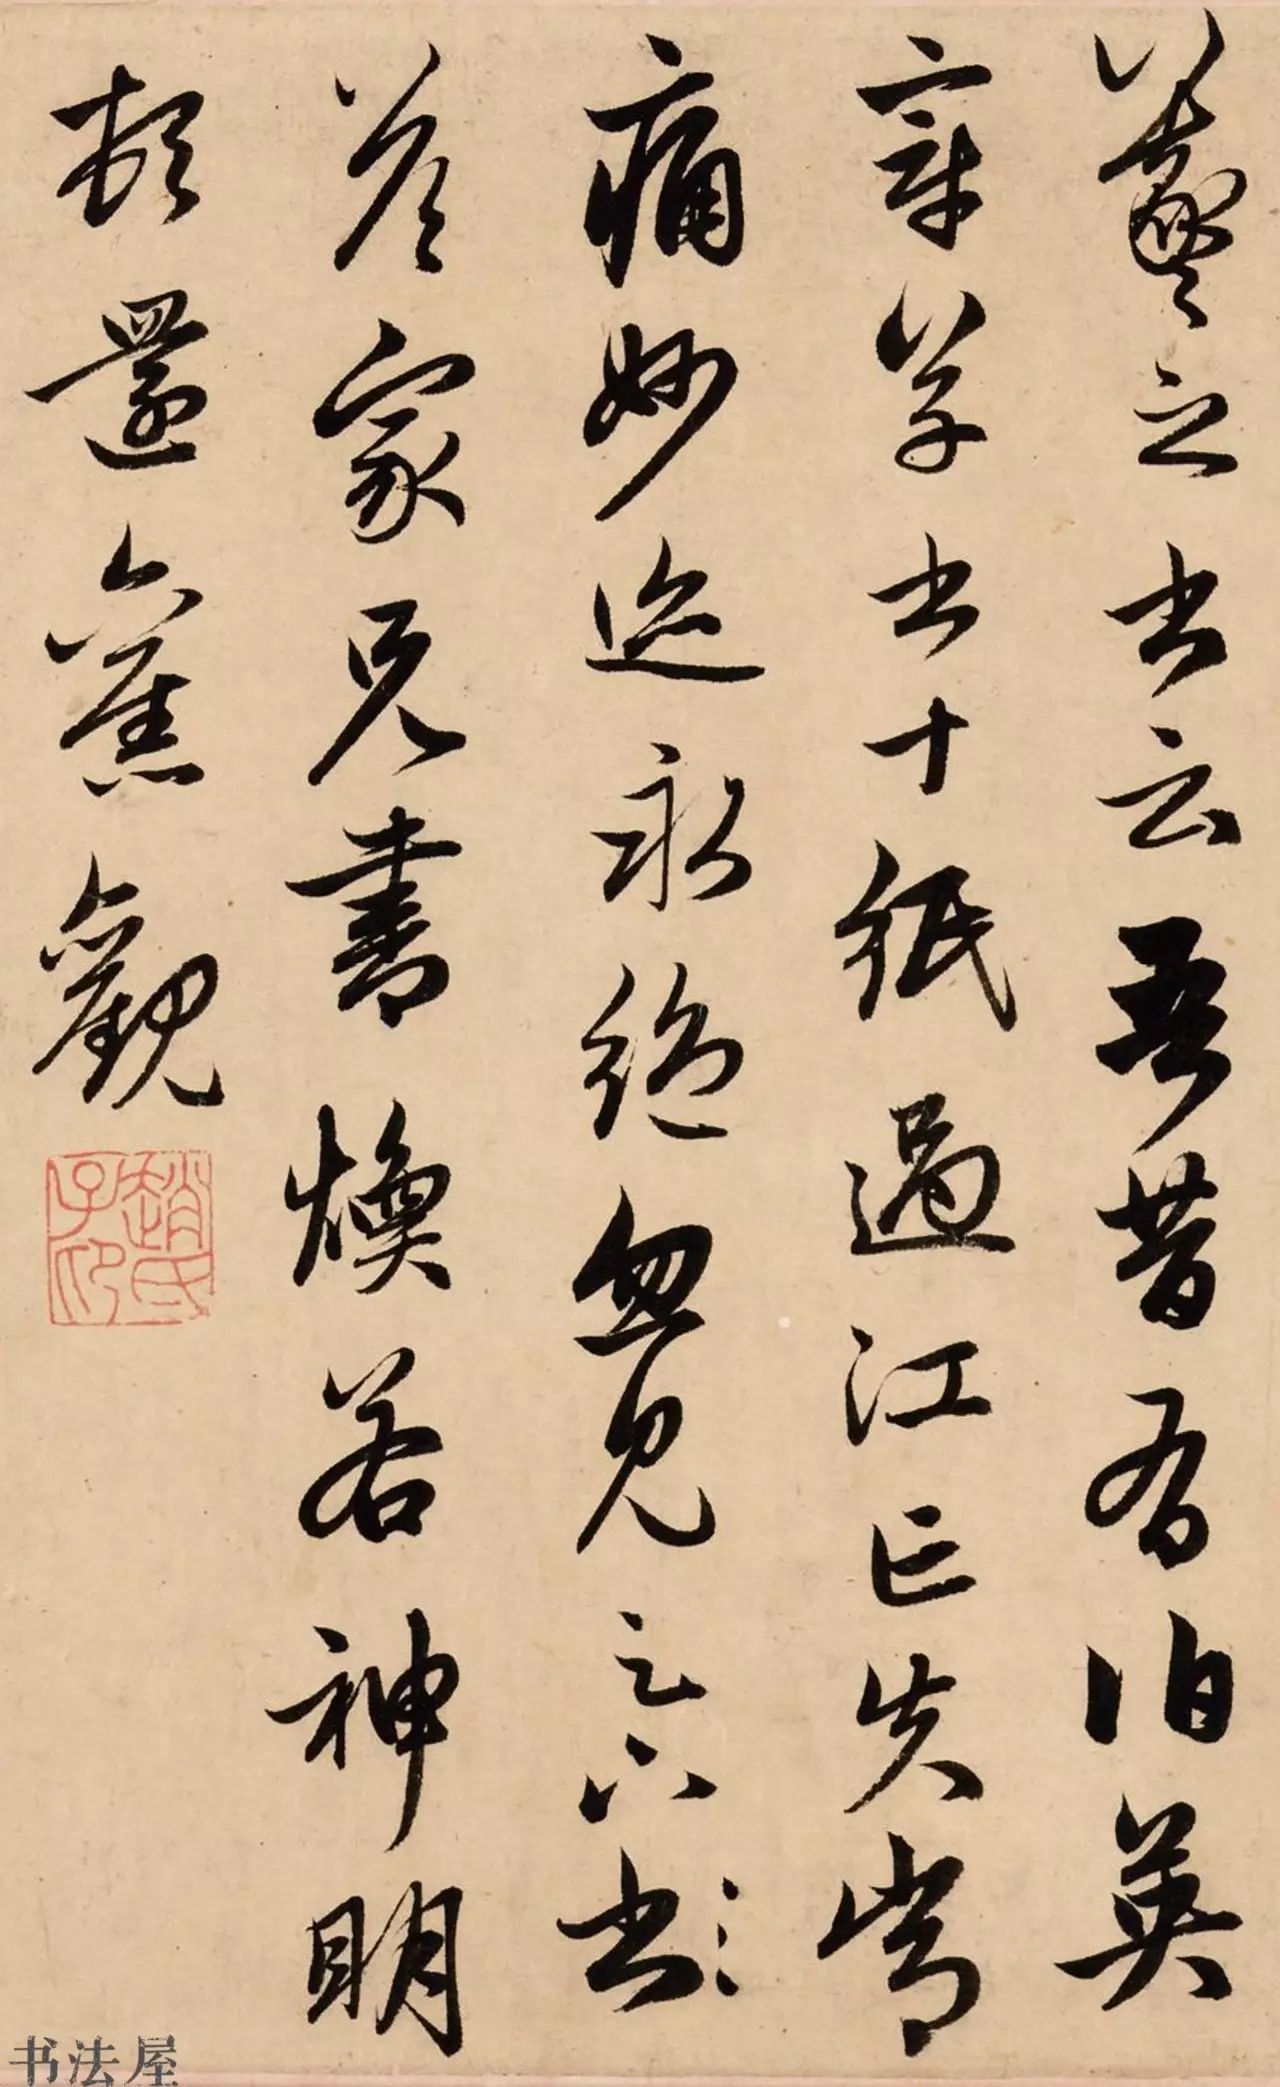 羲之書云吾昔有伯英
章草書十紙過江亡失常
痛妙迹永絕忽見足下書
答家兄書煥若神明
頓還舊觀
趙氏子印
书法屋